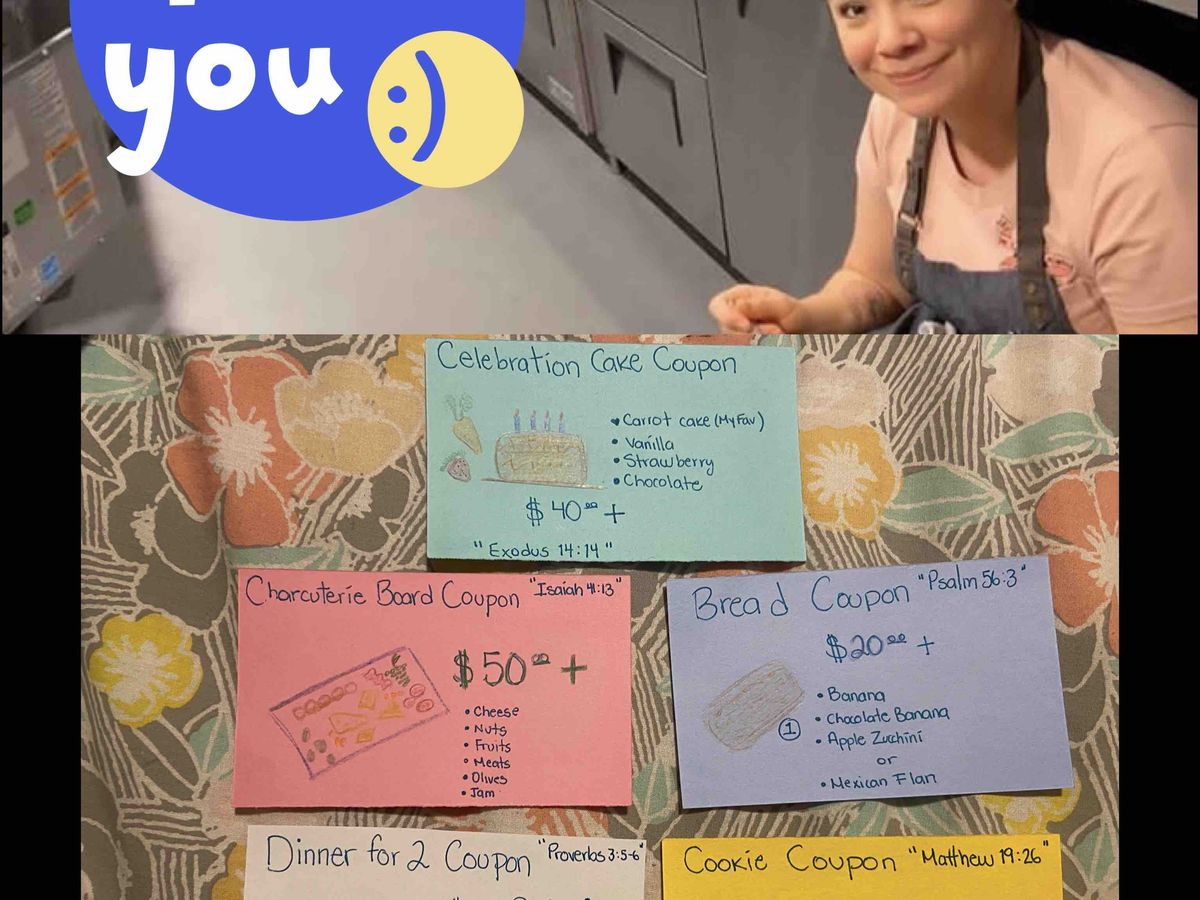 you
Celebration Cake Coupon
Carrot cake (My Fav)
Vanilla
Strawberry
Chocolate
$40.00 +
"Exodus 14:14"
Charcuterie Board Coupon "Isaiah 41:13"
$50.00 +
Cheese
Nuts
Fruits
Meats
Olives
Jam
Bread Coupon "Psalm 56:3"
$20.00 +
1
Banana
Chocolate Banana
Apple Zucchini
or
Mexican Flan
Dinner for 2 Coupon "Proverbs 3:5-6"
Cookie Coupon "Matthew 19:26"